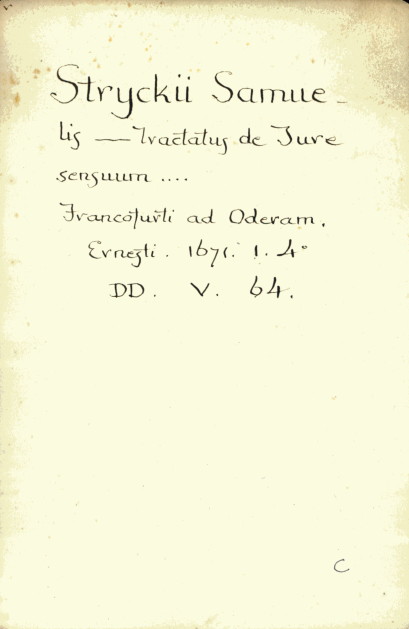 Stryckii Samue-
lis — Tractatus de Jure
sensuum ....
Francofurti ad Oderam.
Ernesti. 1671. 1. 4°
DD. V. 64.
C